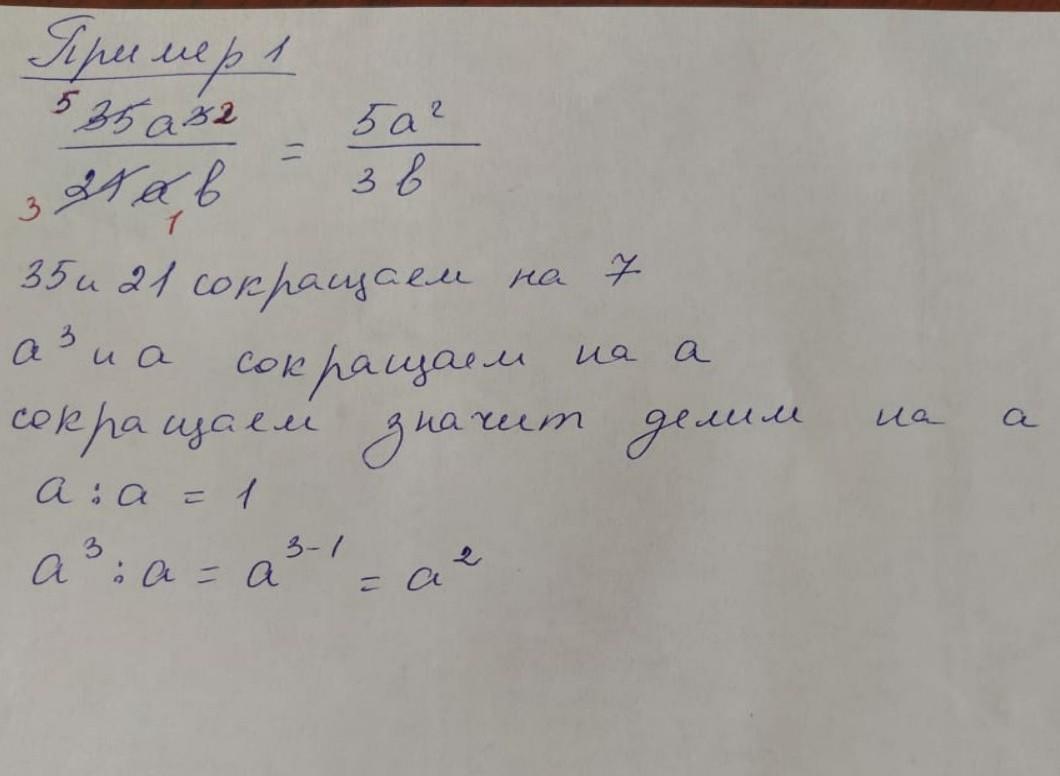 Пример 1
5 35a³ 2 / 3 21 a 1 в = 5a² / 3в
35 и 21 сокращаем на 7
a³ и a сокращаем на a
сокращаем значит делим на a
a : a = 1
a³ : a = a³⁻¹ = a²